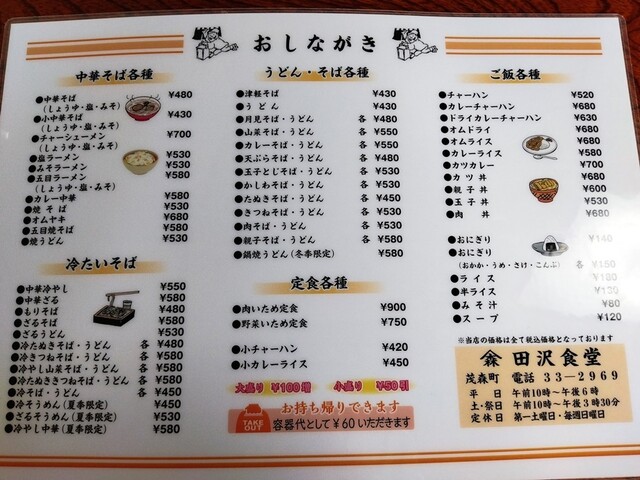 おしながき
中華そば各種
●中華そば ¥480
(しょうゆ・塩・みそ)
●小中華そば ¥430
(しょうゆ・塩・みそ)
●チャーシューメン ¥700
(しょうゆ・塩・みそ)
●塩ラーメン ¥530
●みそラーメン ¥530
●五目ラーメン ¥580
(しょうゆ・塩・みそ)
●カレー中華 ¥580
●焼そば ¥530
●オムヤキ ¥680
●五目焼そば ¥580
●焼うどん ¥530
冷たいそば
●中華冷やし ¥550
●中華ざる ¥580
●もりそば ¥480
●ざるそば ¥580
●ざるうどん ¥530
●冷たぬきそば・うどん 各 ¥480
●冷きつねそば・うどん 各 ¥580
●冷やし山菜そば・うどん 各 ¥580
●冷たぬききつねそば・うどん 各 ¥580
●冷そば・うどん 各 ¥450
●冷そうめん(夏季限定) ¥450
●ざるそうめん(夏季限定) ¥530
●冷やし中華(夏季限定) ¥580
うどん・そば各種
●津軽そば ¥430
●うどん ¥430
●月見そば・うどん 各 ¥480
●山菜そば・うどん 各 ¥550
●カレーそば・うどん 各 ¥550
●天ぷらそば・うどん 各 ¥480
●玉子とじそば・うどん 各 ¥530
●かしわそば・うどん 各 ¥530
●たぬきそば・うどん 各 ¥450
●きつねそば・うどん 各 ¥530
●肉そば・うどん 各 ¥530
●親子そば・うどん 各 ¥580
●鍋焼うどん(冬季限定) ¥580
定食各種
●肉いため定食 ¥900
●野菜いため定食 ¥750
●小チャーハン ¥420
●小カレーライス ¥450
大盛り ¥100増 小盛り ¥50引
TAKE OUT
お持ち帰りできます
容器代として¥60いただきます
ご飯各種
●チャーハン ¥520
●カレーチャーハン ¥680
●ドライカレーチャーハン ¥630
●オムドライ ¥680
●オムライス ¥680
●カレーライス ¥580
●カツカレー ¥700
●カツ丼 ¥680
●親子丼 ¥600
●玉子丼 ¥530
●肉丼 ¥680
●おにぎり ¥140
●おにぎり
(おかか・うめ・さけ・こんぶ) 各 ¥150
●ライス ¥180
●半ライス
●みそ汁 ¥80
●スープ ¥120
※当店の価格は全て税込価格となっております
田沢食堂
茂森町 電話 33-2969
平日 午前10時〜午後6時
土・祭日 午前10時〜午後3時30分
定休日 第一土曜日・毎週日曜日